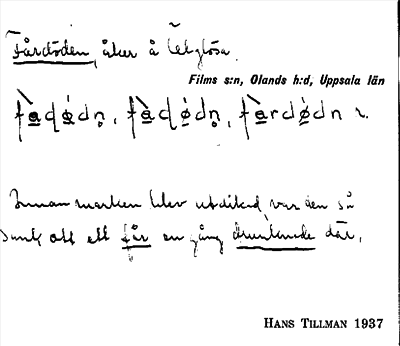 Fårdöden, åker å Ekglösa.
Films s:n, Olands h:d, Uppsala län
Innan marken blev utdikad var den så
sank att ett får en gång drunknade där.
HANS TILLMAN 1937